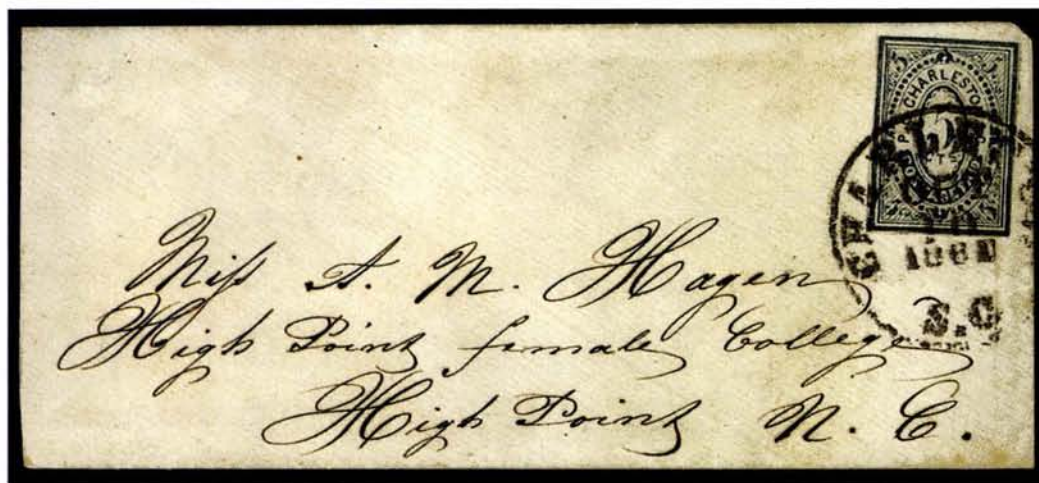 5 5
CHARLESTON
5
CTS
5 5
CHARLESTON
1861
S.C.
Miss A. M. Hagen
High Point female College
High Point N. C.